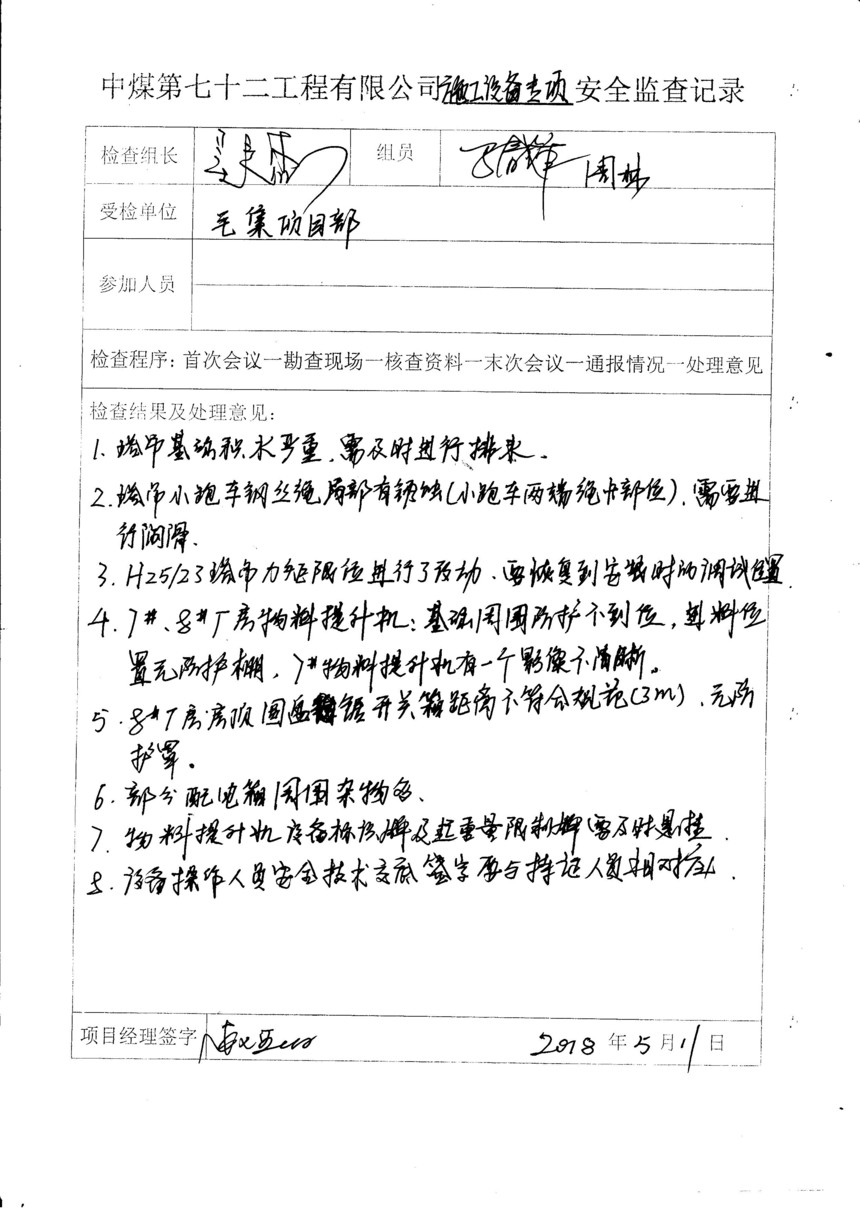 中煤第七十二工程有限公司施工设备专项安全监查记录
检查组长 组员 周林
受检单位 毛集项目部
参加人员
检查程序：首次会议一勘查现场一核查资料一末次会议一通报情况一处理意见
检查结果及处理意见：
1. 塔吊基础积水严重，需及时进行排水.
2. 塔吊小跑车钢丝绳局部有锈蚀(小跑车两端绳卡部位)，需要进
行润滑.
3. H25/23塔吊力矩限位进行了改动、要恢复到安装时的调试位置
4. 7#、8#厂房物料提升机：基础周围防护不到位，进料位
置无防护棚，7#物料提升机有一个影像不清晰。
5. 8#厂房房顶圆盘锯开关箱距离不符合规范(3m)、无防
护罩。
6. 部分配电箱周围杂物多、
7. 物料提升机设备标识牌及起重量限制牌需及时悬挂.
8. 设备操作人员安全技术交底签字要与持证人员相对应.
项目经理签字 2018年5月11日